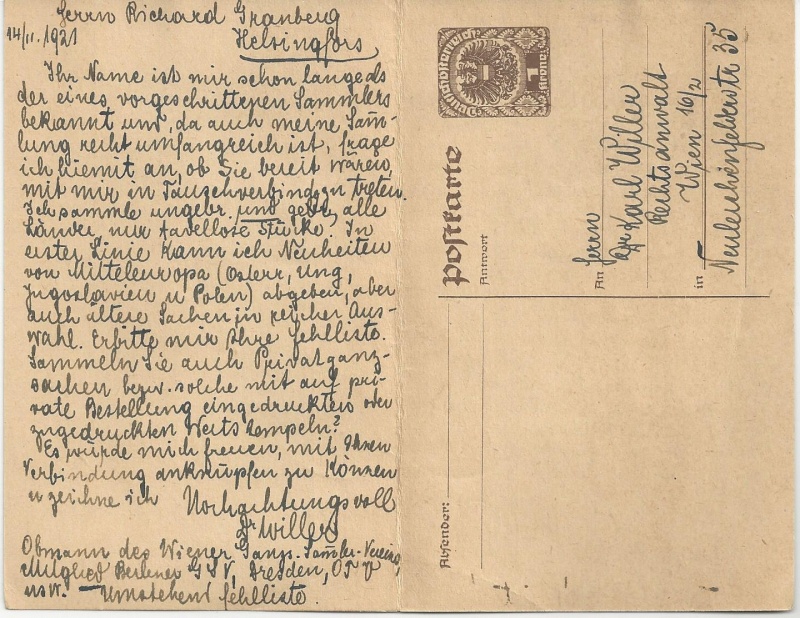 Herrn Richard Granberg
14/II. 1921
Helsingfors
Ihr Name ist mir schon lange als
der eines vorgeschrittenen Sammlers
bekannt und, da auch meine Sam̅-
lung recht umfangreich ist, frage
ich hiemit an, ob Sie bereit wären,
mit mir in Tauschverbindg zu treten.
Ich sammle ungebr. und gebr., alle
Länder, nur tadellose Stücke. In
erster Linie kann ich Neuheiten
von Mitteleuropa (Österr, Ung,
Jugoslavien u Polen) abgeben, aber
auch ältere Sachen in reicher Aus-
wahl. Erbitte mir Ihre Fehlliste.
Sammeln Sie auch Privatganz-
sachen bezw. solche mit auf pri-
vate Bestellung eingedruckten oder
zugedruckten Wertstempeln?
Es würde mich freuen, mit Ihnen
Verbindung anknüpfen zu können
u zeichne ich Hochachtungsvoll
Dr Willer
Obmann des Wiener Ganzs.-Sam̅ler-Vereins,
Mitglied Berliner GSV, Dresden,
usw. – Umstehend Fehlliste.
Deutschösterreich
1
Postkarte
Antwort
Herrn
An Dr Karl Willer
Rechtsanwalt
Wien 16/2
in Neulerchenfelderstr 35
Absender: